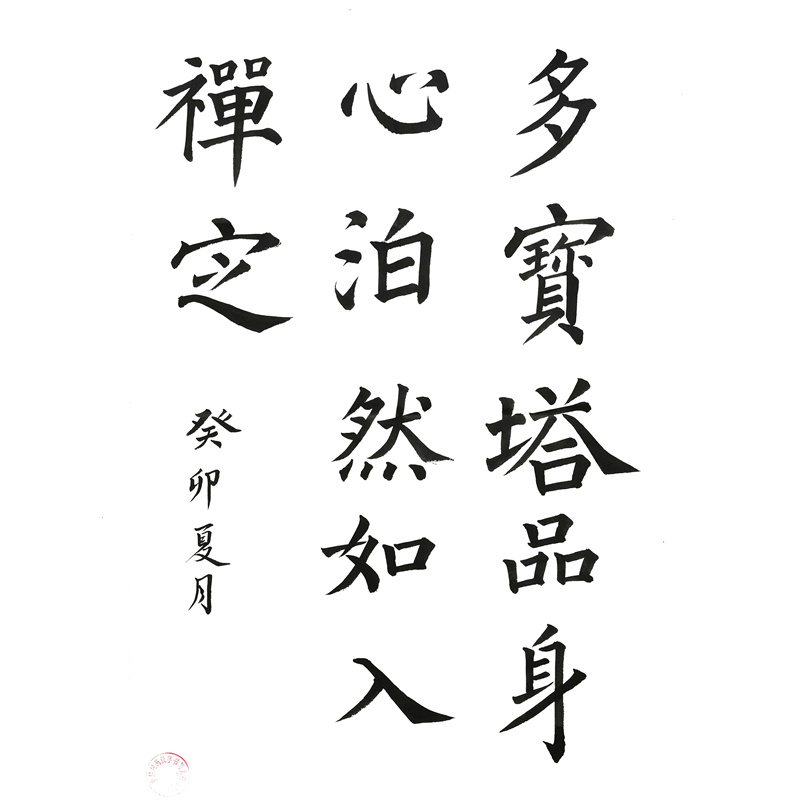 多寶塔品身
心泊然如入
禪定
癸卯夏月